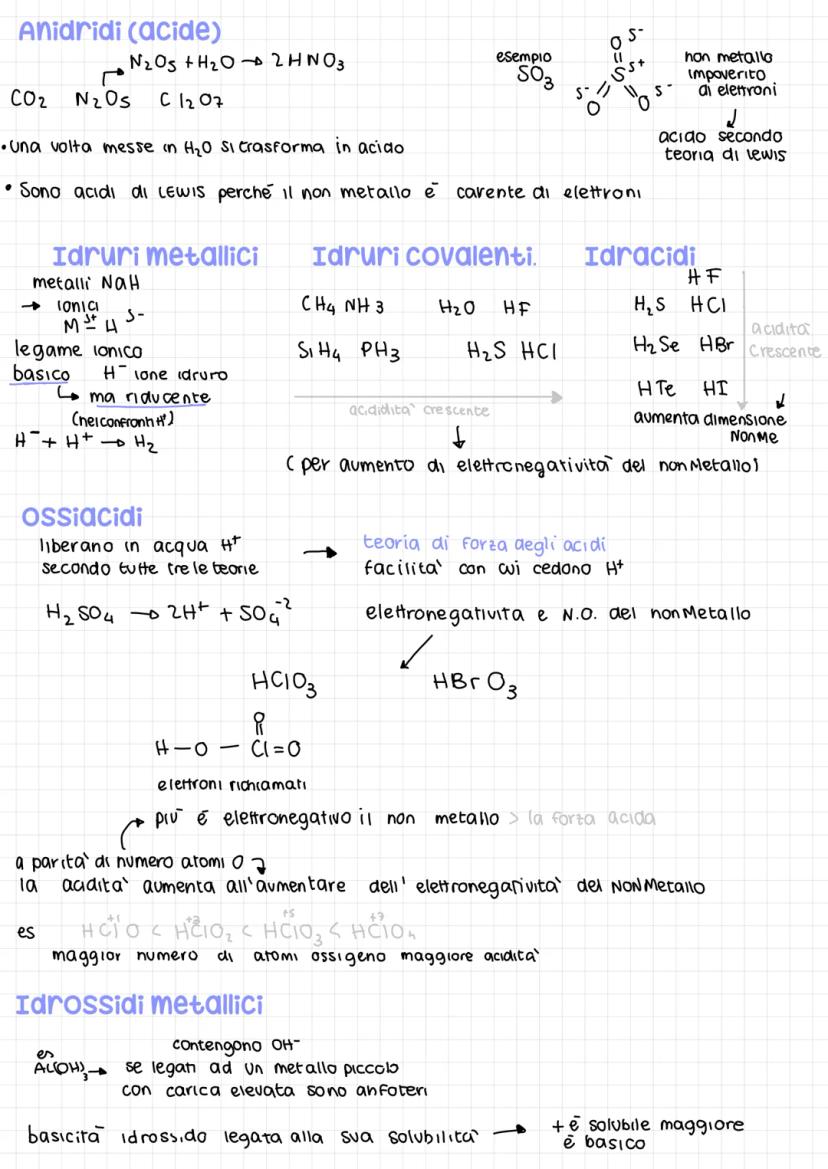 Anidridi (acide)
N2O5 + H2O → 2HNO3
CO2 N2O5 Cl2O7
• Una volta messe in H2O si trasforma in acido
• Sono acidi di LEWIS perché il non metallo è carente di elettroni
esempio
SO3
O δ-
S δ+
δ- O O δ-
non metallo
impoverito
di elettroni
acido secondo
teoria di lewis
Idruri metallici
metalli NaH
→ ionici
M δ+ – H δ-
legame ionico
basico H⁻ ione idruro
↳ ma riducente
(nei confronti H⁺)
H⁻ + H⁺ → H2
Idruri covalenti.
CH4 NH3 H2O HF
SiH4 PH3 H2S HCl
acididità crescente
(per aumento di elettronegatività del nonMetallo)
Idracidi
HF
H2S HCl
H2Se HBr
HTe HI
acidità
crescente
aumenta dimensione
NonMe
Ossiacidi
liberano in acqua H⁺
secondo tutte tre le teorie
→ teoria di forza degli acidi
facilità con cui cedono H⁺
H2SO4 → 2H⁺ + SO4⁻²
elettronegatività e N.O. del nonMetallo
HClO3 HBrO3
O
H – O – Cl = O
elettroni richiamati
più è elettronegativo il non metallo > la forza acida
a parità di numero atomi O
la acidità aumenta all'aumentare dell' elettronegatività del NONMetallo
+1 +3 +5 +7
es HClO < HClO2 < HClO3 < HClO4
maggior numero di atomi ossigeno maggiore acidità
Idrossidi metallici
contengono OH⁻
es
Al(OH)3 → se legati ad un metallo piccolo
con carica elevata sono anfoteri
basicità idrossido legata alla sua solubilità → + è solubile maggiore
è basico